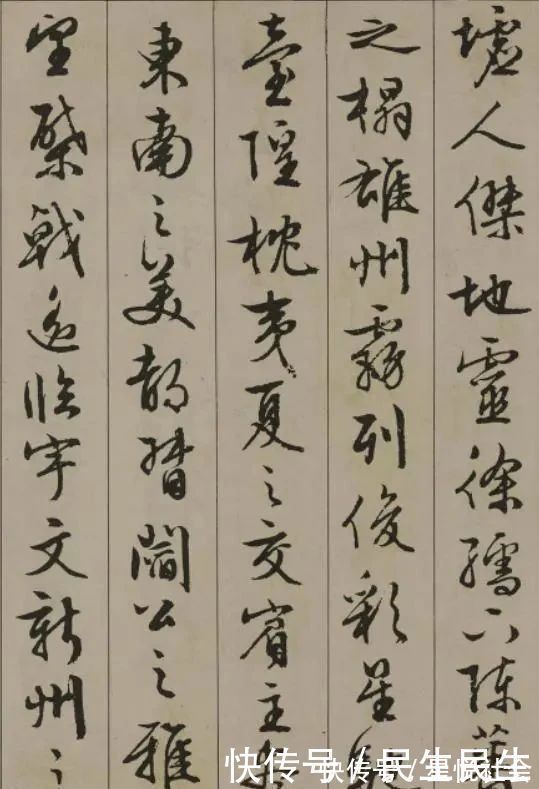 墟人傑地靈徐孺下陳蕃
之榻雄州霧列俊彩星馳
臺隍枕夷夏之交賓主盡
東南之美都督閻公之雅
望棨戟遥臨宇文新州之
快传号/民生民生
快传号/